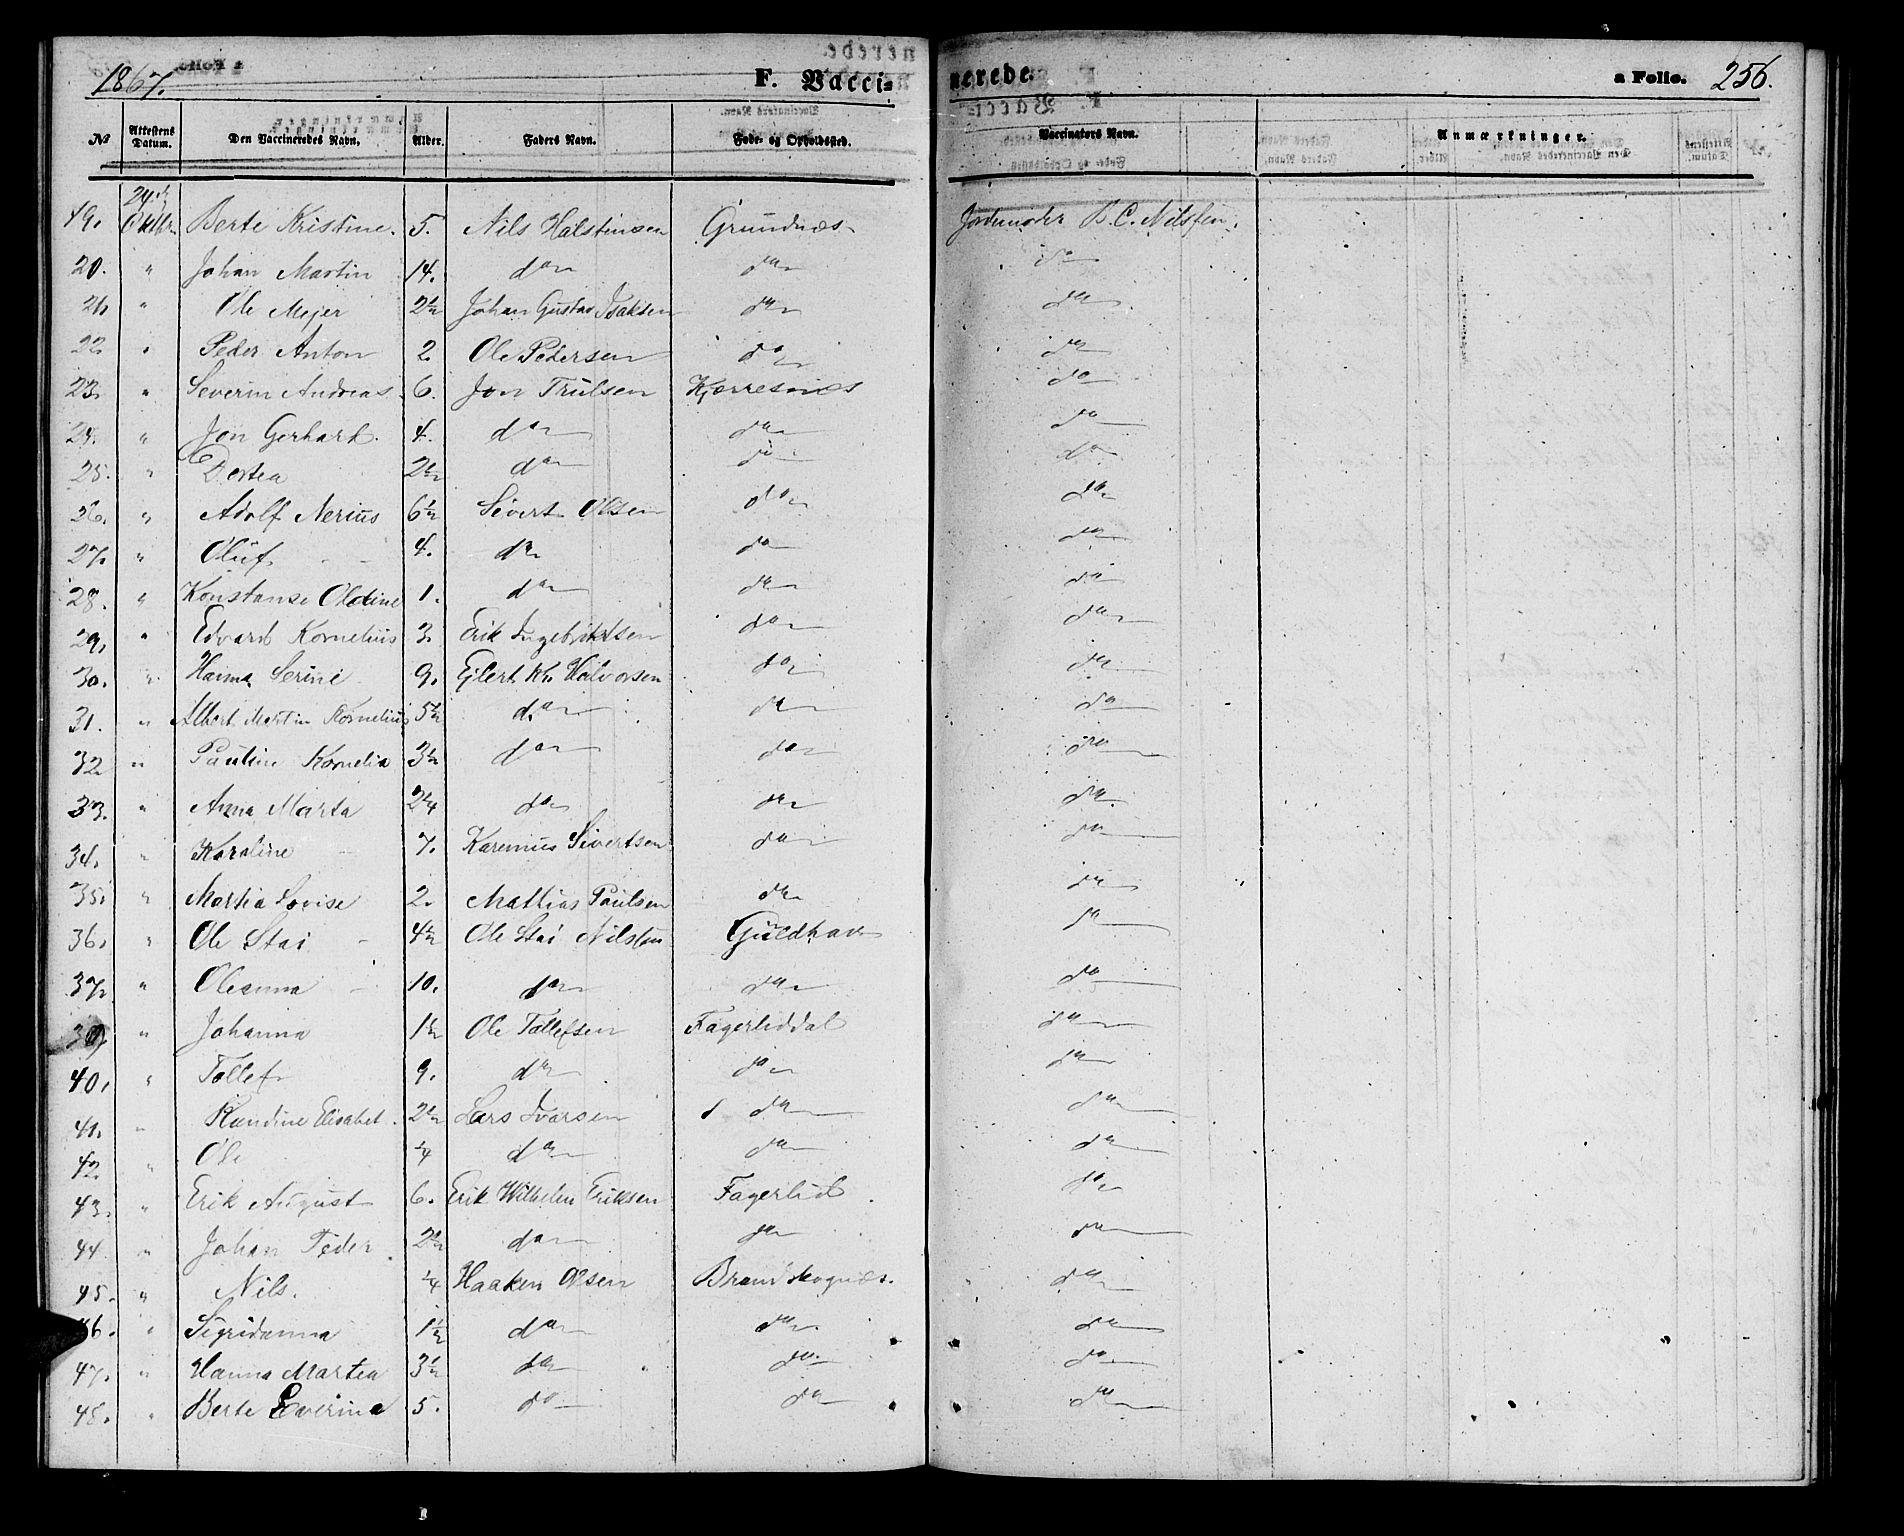 1867. F. Vacci- nerede. a Folio. 256.
No Attestens Datum. Den Vaccineredes Navn. Alder. Faders Navn. Føde- og Opholdssted. Vaccinators Navn. Anmærkninger.
19. 24d Oktbr. Berte Kristine. 5. Nils Halstinsen Grundnæs Jordemoder B. C. Nilssen.
20. " Johan Martin 14. do do do
21. " Ole Mejer 2½ Johan Gustav Isaksen do do
22. " Peder Anton 2. Ole Pedersen do do
23. " Severin Andreas 6. Jon Trulsen Kjerresnes do
24. " Jon Gerhart. 4. do do do
25. " Dortea 2½ do do do
26. " Adolf Nerius 6½ Sivert Olsen do do
27. " Oluf 4. do do do
28. " Konstanse Oldine 1. do do do
29. " Edvard Kornelius 3. Erik Ingebriktsen do do
30. " Hanna Serine 9. Ejlert Kr. Halvorsen do do
31. " Albert Martin Kornelius 5½ do do do
32 " Pauline Kornelia 3½ do do do
33. " Anna Marta 2¼ do do do
34. " Karoline 7. Karenius Sivertsen do do
35. " Martia Lovise 2. Mathias Paulsen do do
36. " Ole Stai 4½ Ole Stai Nilsen Guldhav do
37. " Oleanna 10. do do do
39 " Johanna 1½ Ole Tollefsen Fagerliddal do
40. " Tollef 9. do do do
41. " Randine Elisabet. 2½ Lars Ivarsen do do
42 " Ole ¼ do do do
43. " Erik August 6. Erik Wilhelm Eriksen Fagerlid do
44. " Johan Peder. 2½ do do do
45. " Nils. ¼ Haaken Olsen Brandskognæs. do
46. " Sigridanna 1½ do do do
47. " Hanna Martea 3½ do do do
48. " Berte Severina 5. do do do